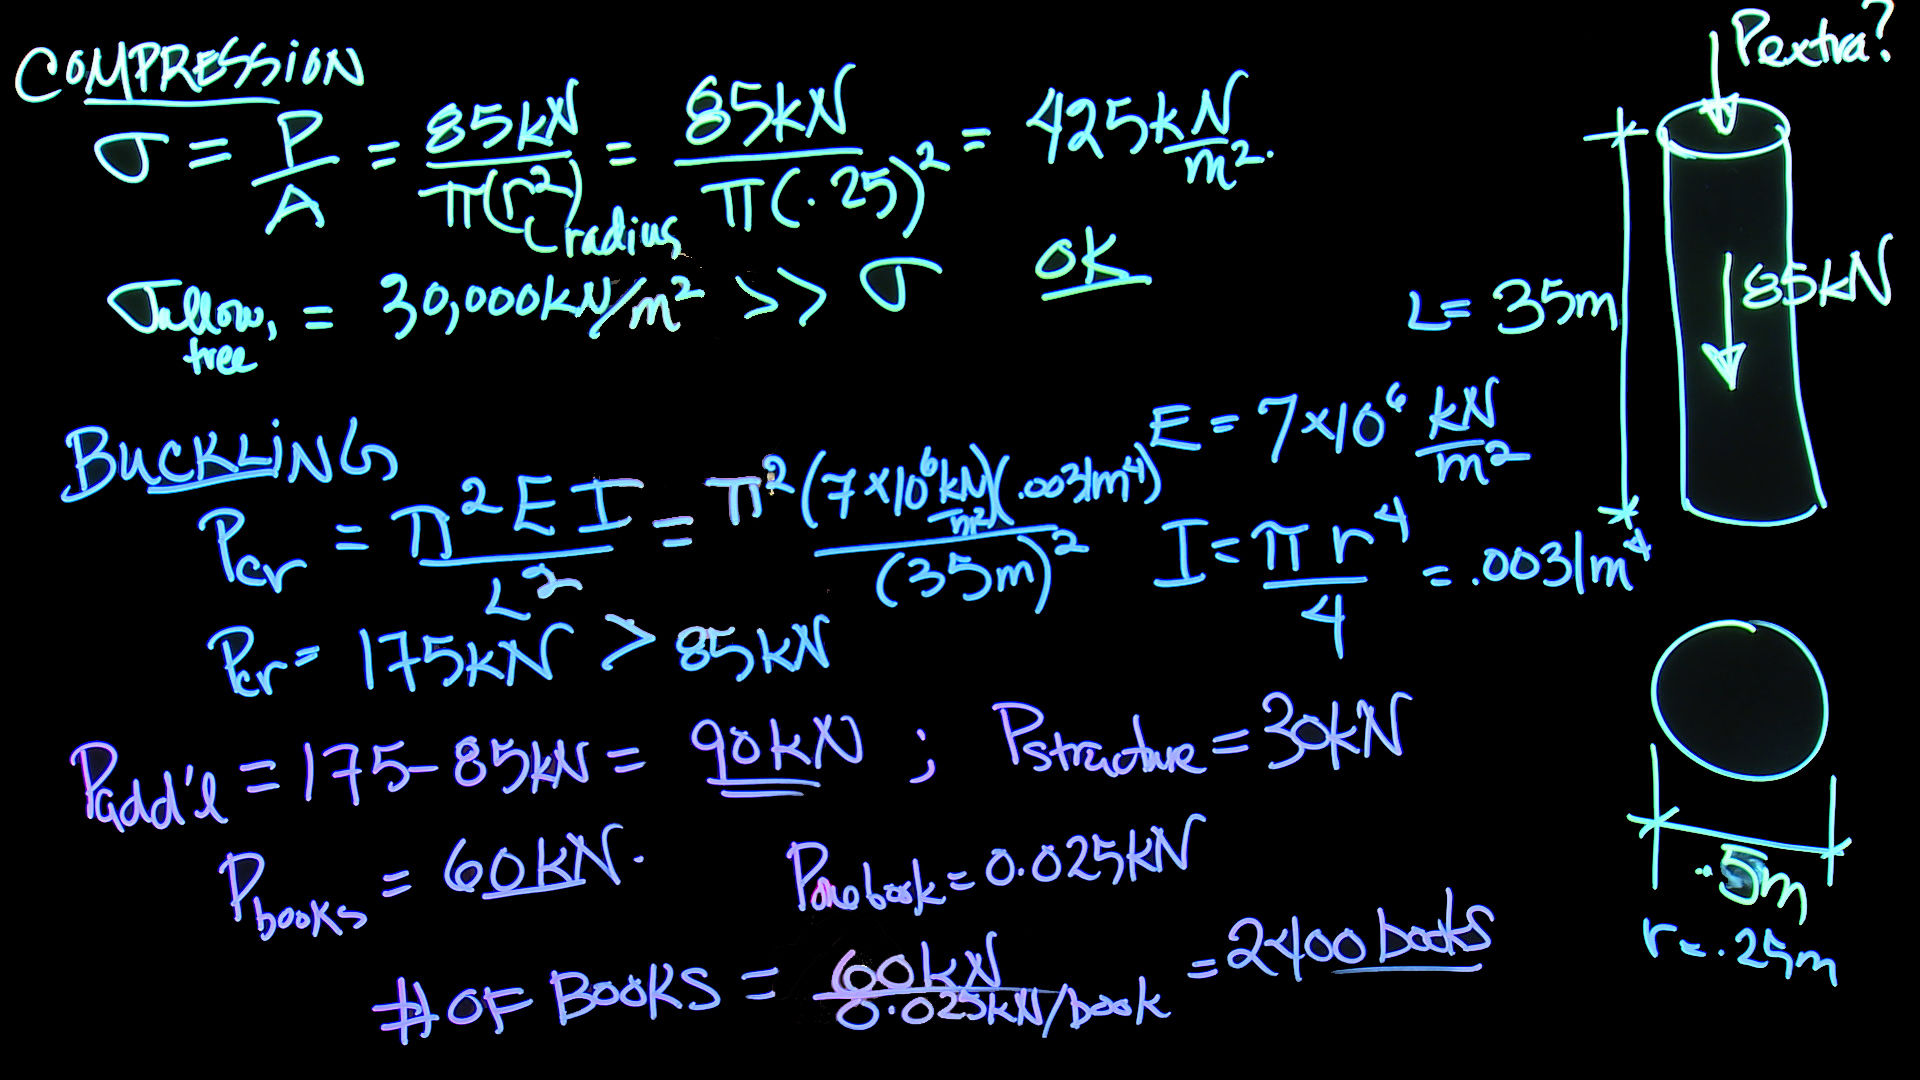 COMPRESSION
σ = P/A = 85kN/π(r²) = 85kN/π(.25)² = 425kN/m².
radius
σallow, tree = 30,000kN/m² >> σ OK
BUCKLING
Pcr = π²EI/L² = π²(7×10⁶kN/m²)(.0031m⁴)/(35m)²
E = 7×10⁶ kN/m²
I = πr⁴/4 = .0031m⁴
Pcr = 175kN > 85kN
Padd'l = 175-85kN = 90kN ; Pstructure = 30kN
Pbooks = 60kN. Pone book = 0.025kN
# OF BOOKS = 60kN/0.025kN/book = 2400 books
Pextra?
85kN
L = 35m
.5m
r = .25m